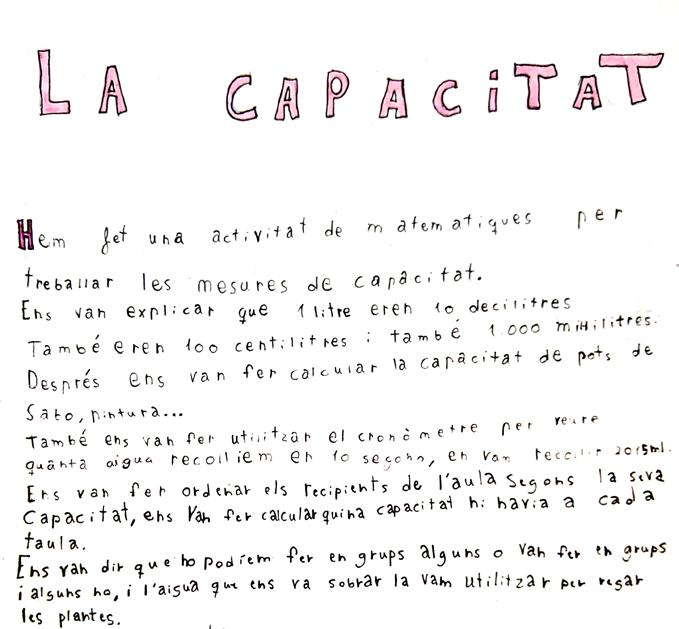 LA CAPACiTAT
Hem fet una activitat de matematiques per
treballar les mesures de capacitat.
Ens van explicar que 1 litre eren 10 decilitres
També eren 100 centilitres i també 1.000 mil·lilitres.
Després ens van fer calcular la capacitat de pots de
Sabo, pintura...
També ens van fer utilitzar el cronòmetre per veure
quanta aigua recolliem en 10 segons, en van recollir 2015ml.
Ens van fer ordenar els recipients de l'aula segons la seva
Capacitat, ens van fer calcular quina capacitat hi havia a cada
taula.
Ens van dir que ho podíem fer en grups alguns o van fer en grups
i alguns no, i l'aigua que ens va sobrar la vam utilitzar per regar
les plantes.